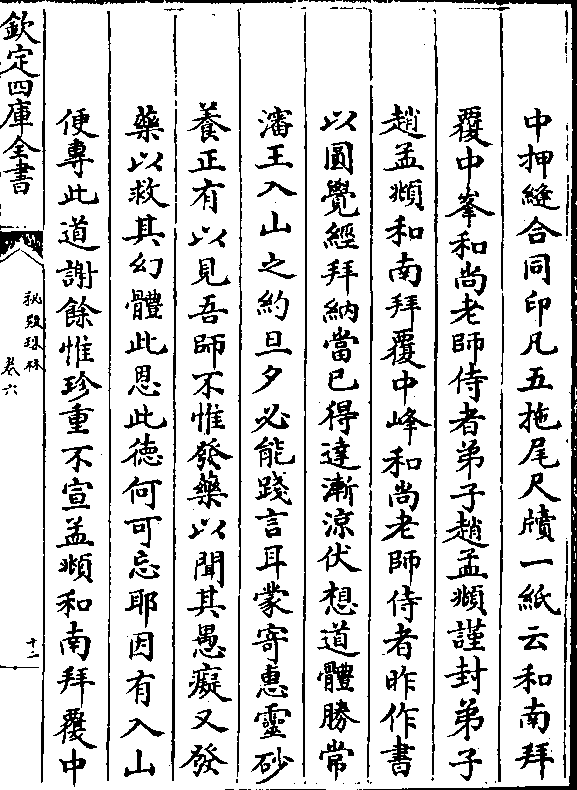 中押縫合同印凡五拖尾尺牘一紙云和南拜
覆中峯和尚老師侍者弟子趙孟頫謹封弟子
趙孟頫和南拜覆中峰和尚老師侍者昨作書
以圓覺經拜納當已得達漸涼伏想道體勝常
瀋王入山之約旦夕必能踐言耳蒙寄惠靈砂
養正有以見吾師不惟發藥以開其愚癡又發
藥以救其幻體此恩此徳何可忘耶因有入山
便専此道謝餘惟珍重不宣孟頫和南拜覆中
欽定四庫全書
秘殿珠林
卷六
十二